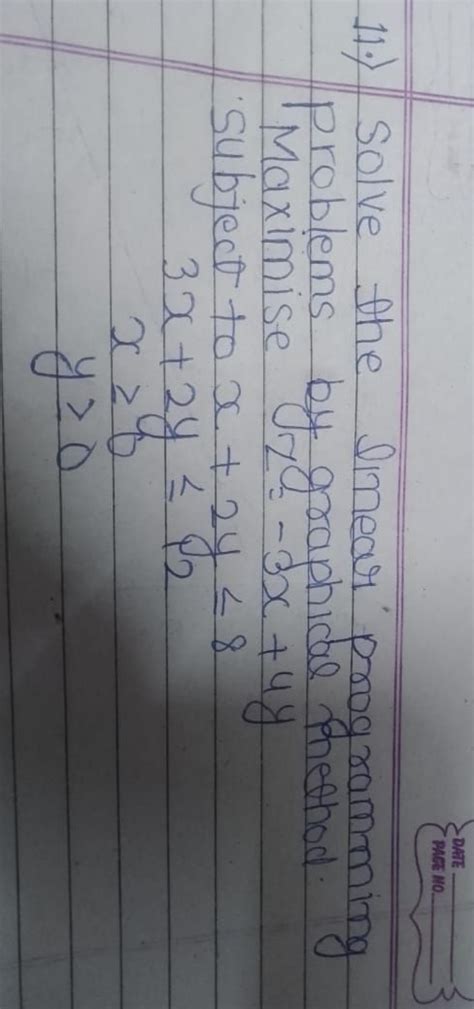 DATE
PAGE NO.
11.) Solve the linear programming
problems by graphical method.
Maximise Z = -3x + 4y
subject to x + 2y ≤ 8
3x + 2y ≤ 12
x ≥ 0
y ≥ 0